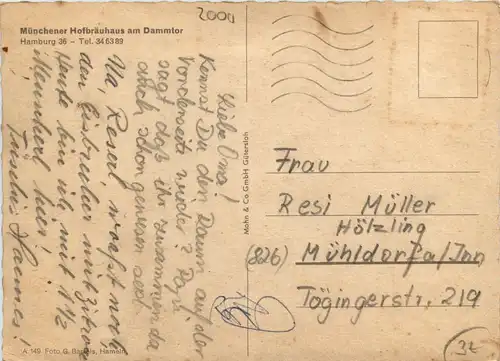 2000
Münchener Hofbräuhaus am Dammtor
Hamburg 36 – Tel. 34 63 89
Liebe Oma!
Kennst Du den Raum auf der
Vorderseite wieder? Papa
sagt daß ihr zusammen da
auch schon gewesen seid.
Na, Reserl weißt noch
den Eisbecher mit
Heute bin ich mit 1 1/2
hier!
Mohn & Co GmbH Gütersloh
Frau
Resi Müller
Hölzling
(826) Mühldorf a/Inn
Tögingerstr. 219
A 149 Foto G. Bartels, Hameln
32